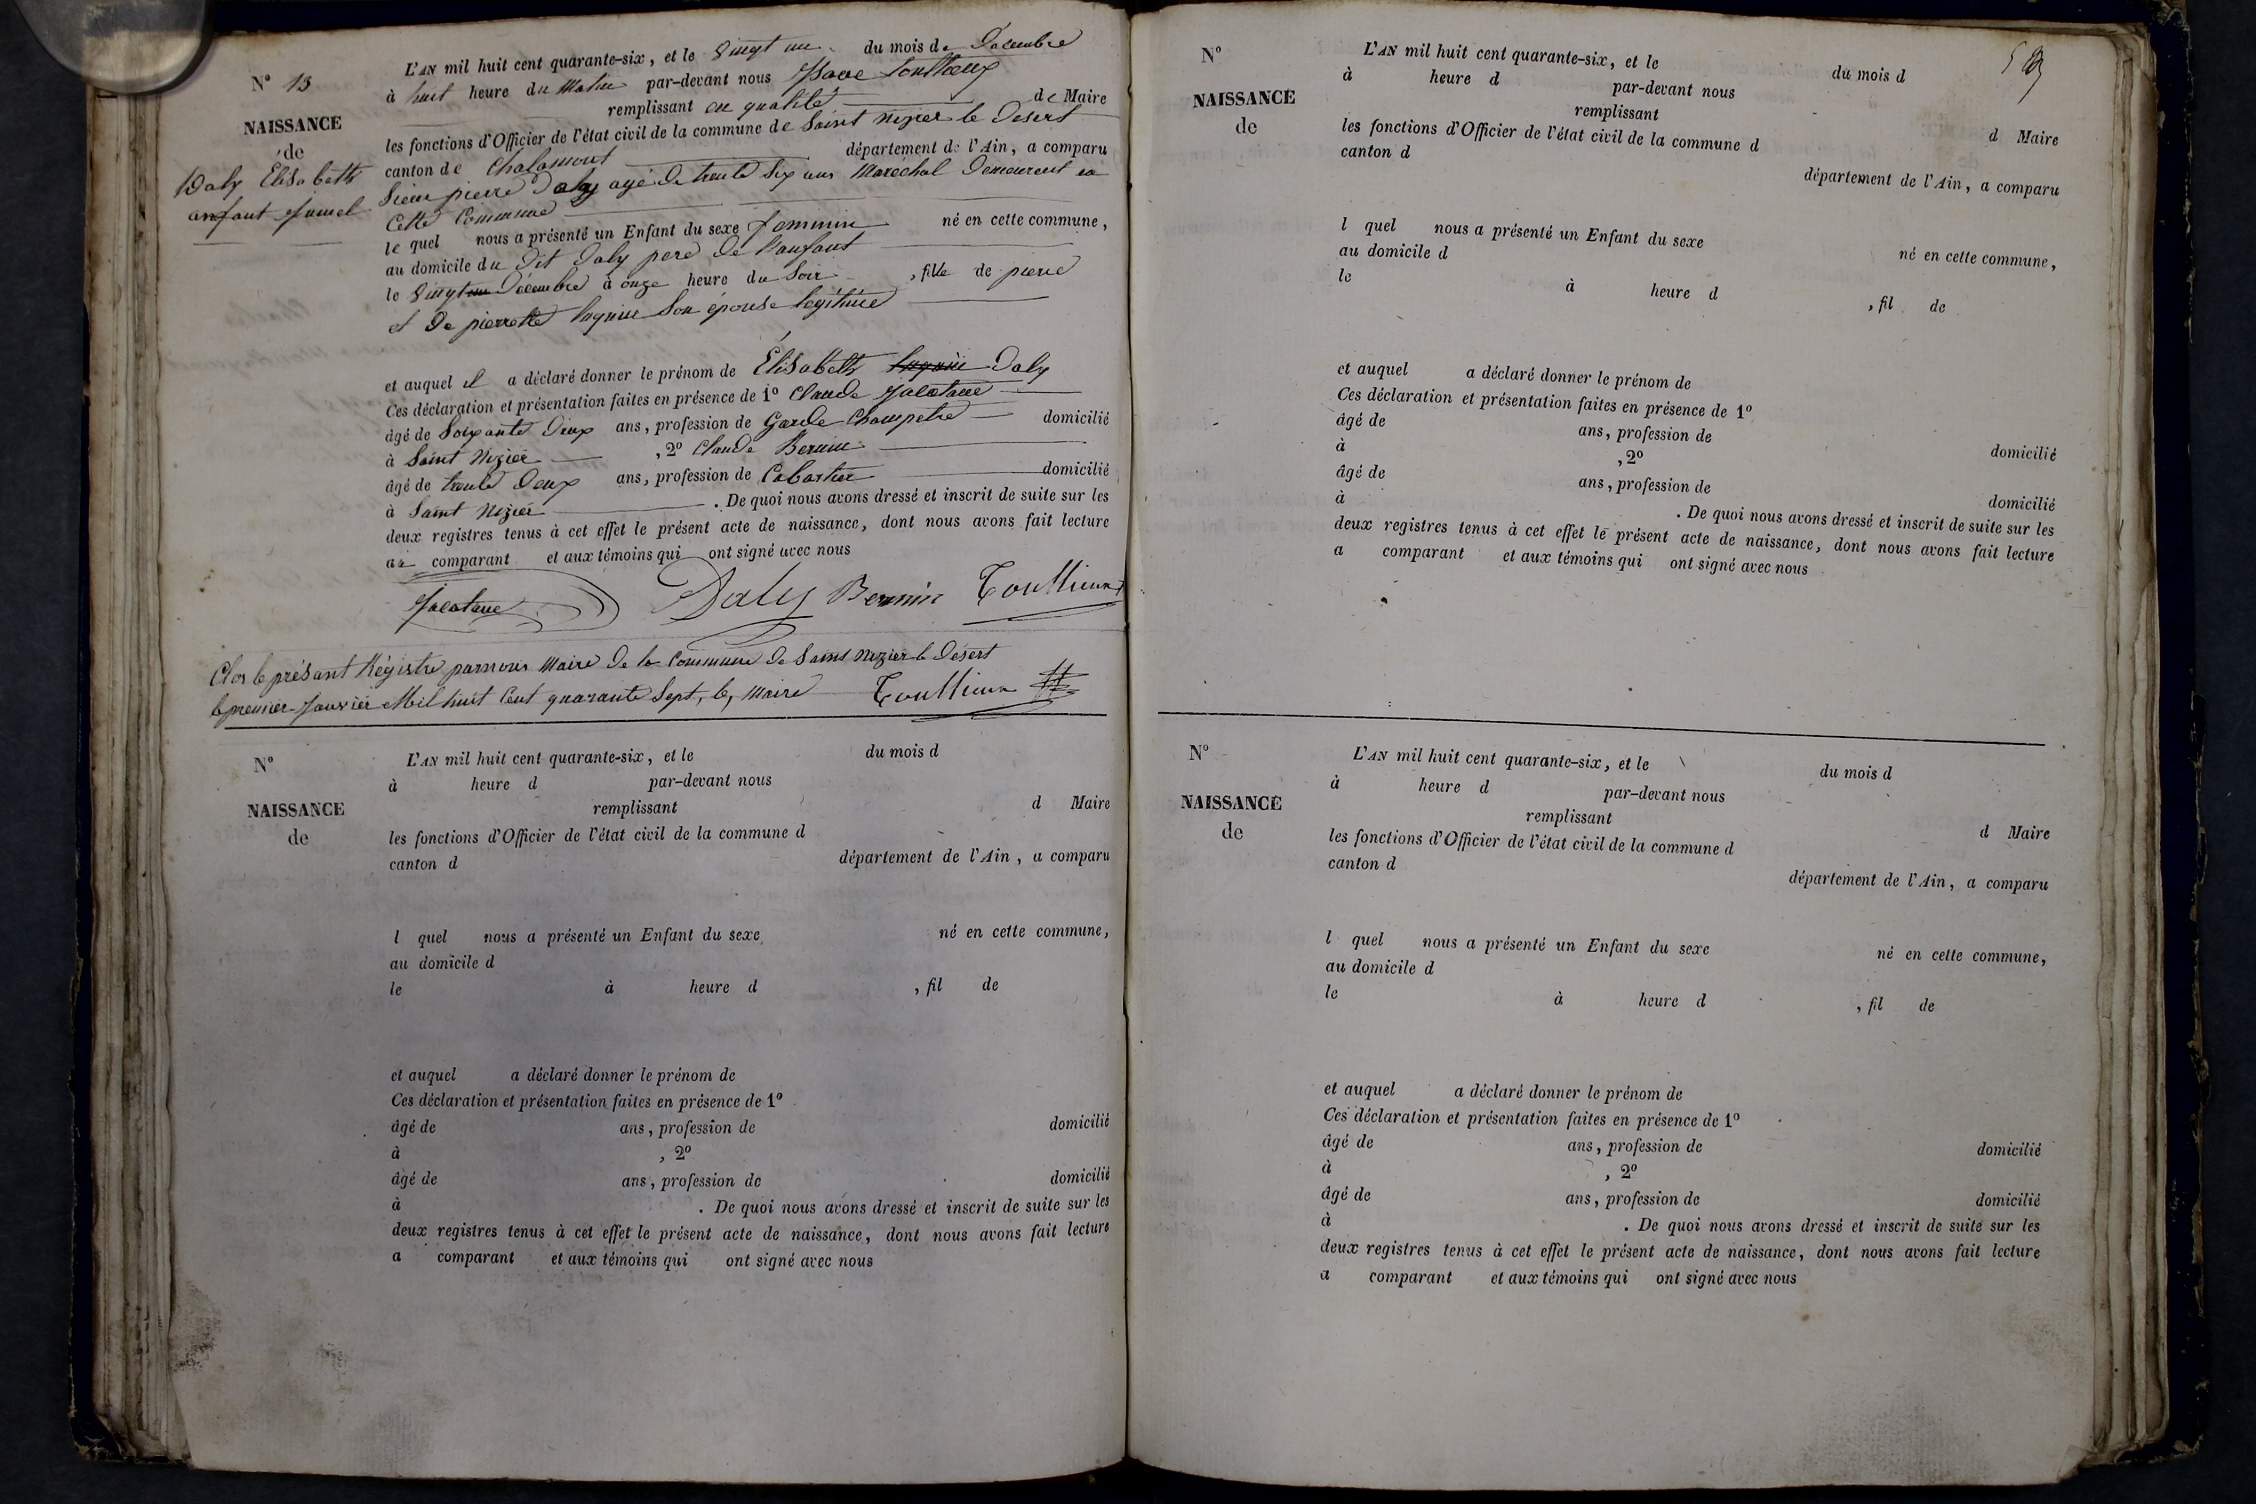 N° 13
NAISSANCE
de
Daly Elisabeth
anfant jumel
L'AN mil huit cent quarante-six, et le vingt un du mois de Decembre
à huit heure du Matin par-devant nous
remplissant en qualité de Maire
les fonctions d'Officier de l'état civil de la commune de Saint Nizier le Desert
canton de Chalamont département de l'Ain, a comparu
Sieur pierre Daly agé de trente six ans Maréchal Demeurent en
Cette Commune
le quel nous a présenté un Enfant du sexe feminin né en cette commune,
au domicile du dit Daly pere de l'anfant
le vingt un Décembre à onze heure du Soir, fille de pierre
et de pierrette Son épouse legitime
et auquel il a déclaré donner le prénom de Élisabeth Daly
Ces déclaration et présentation faites en présence de 1° Claude
âgé de Soixante Deux ans, profession de Garde Champetre domicilié
à Saint Nizier, 2° Claude Bernin
âgé de trente Deux ans, profession de Cabartier domicilié
à Saint Nizier. De quoi nous avons dressé et inscrit de suite sur les
deux registres tenus à cet effet le présent acte de naissance, dont nous avons fait lecture
au comparant et aux témoins qui ont signé avec nous
Daly Bernin Toullieux
Clos le présant Régistre par nous Maire de la Commune de Saint Nizier le Désert
le premier Janvier Mil huit Cent quarante Sept, le, Maire Toullieux
N°
NAISSANCE
de
L'AN mil huit cent quarante-six, et le du mois d
à heure d par-devant nous
remplissant d Maire
les fonctions d'Officier de l'état civil de la commune d
canton d département de l'Ain, a comparu
l quel nous a présenté un Enfant du sexe né en cette commune,
au domicile d
le à heure d , fil de
et auquel a déclaré donner le prénom de
Ces déclaration et présentation faites en présence de 1°
âgé de ans, profession de domicilié
à , 2°
âgé de ans, profession de domicilié
à . De quoi nous avons dressé et inscrit de suite sur les
deux registres tenus à cet effet le présent acte de naissance, dont nous avons fait lecture
a comparant et aux témoins qui ont signé avec nous
N°
NAISSANCE
de
L'AN mil huit cent quarante-six, et le du mois d
à heure d par-devant nous
remplissant d Maire
les fonctions d'Officier de l'état civil de la commune d
canton d département de l'Ain, a comparu
l quel nous a présenté un Enfant du sexe né en cette commune,
au domicile d
le à heure d , fil de
et auquel a déclaré donner le prénom de
Ces déclaration et présentation faites en présence de 1°
âgé de ans, profession de domicilié
à , 2°
âgé de ans, profession de domicilié
à . De quoi nous avons dressé et inscrit de suite sur les
deux registres tenus à cet effet le présent acte de naissance, dont nous avons fait lecture
a comparant et aux témoins qui ont signé avec nous
N°
NAISSANCE
de
L'AN mil huit cent quarante-six, et le du mois d
à heure d par-devant nous
remplissant d Maire
les fonctions d'Officier de l'état civil de la commune d
canton d département de l'Ain, a comparu
l quel nous a présenté un Enfant du sexe né en cette commune,
au domicile d
le à heure d , fil de
et auquel a déclaré donner le prénom de
Ces déclaration et présentation faites en présence de 1°
âgé de ans, profession de domicilié
à , 2°
âgé de ans, profession de domicilié
à . De quoi nous avons dressé et inscrit de suite sur les
deux registres tenus à cet effet le présent acte de naissance, dont nous avons fait lecture
a comparant et aux témoins qui ont signé avec nous